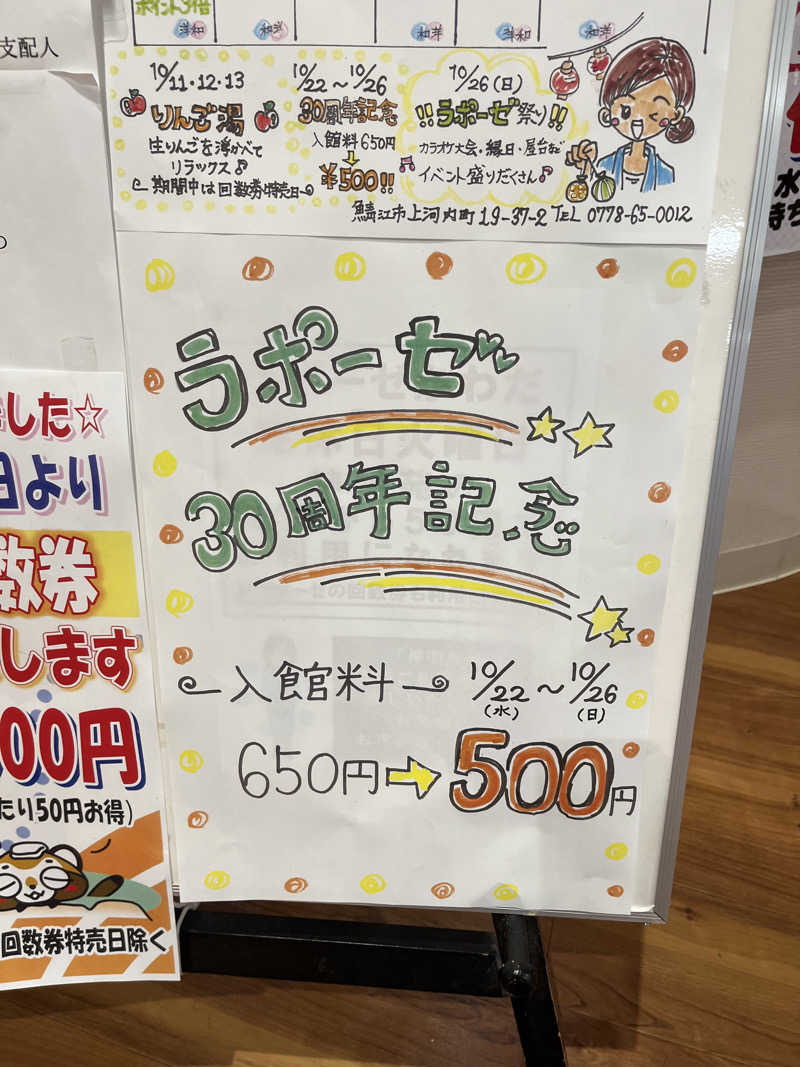 ポイント3倍
洋和
和洋
和洋
洋和
和洋
支配人
10/11・12・13
りんご湯
生りんごを浮かべて
リラックス♪
期間中は回数券特売日
10/22～10/26
30周年記念
入館料650円
¥500!!
10/26(日)
!!ラポーゼ祭り!!
カラオケ大会・縁日・屋台など
イベント盛りだくさん♪
鯖江市上河内町19-37-2 TEL 0778-65-0012
ラポーゼ
30周年記念
入館料 10/22(水)～10/26(日)
650円→500円
した☆
日より
数券
します
00円
たり50円お得)
回数券特売日除く
水